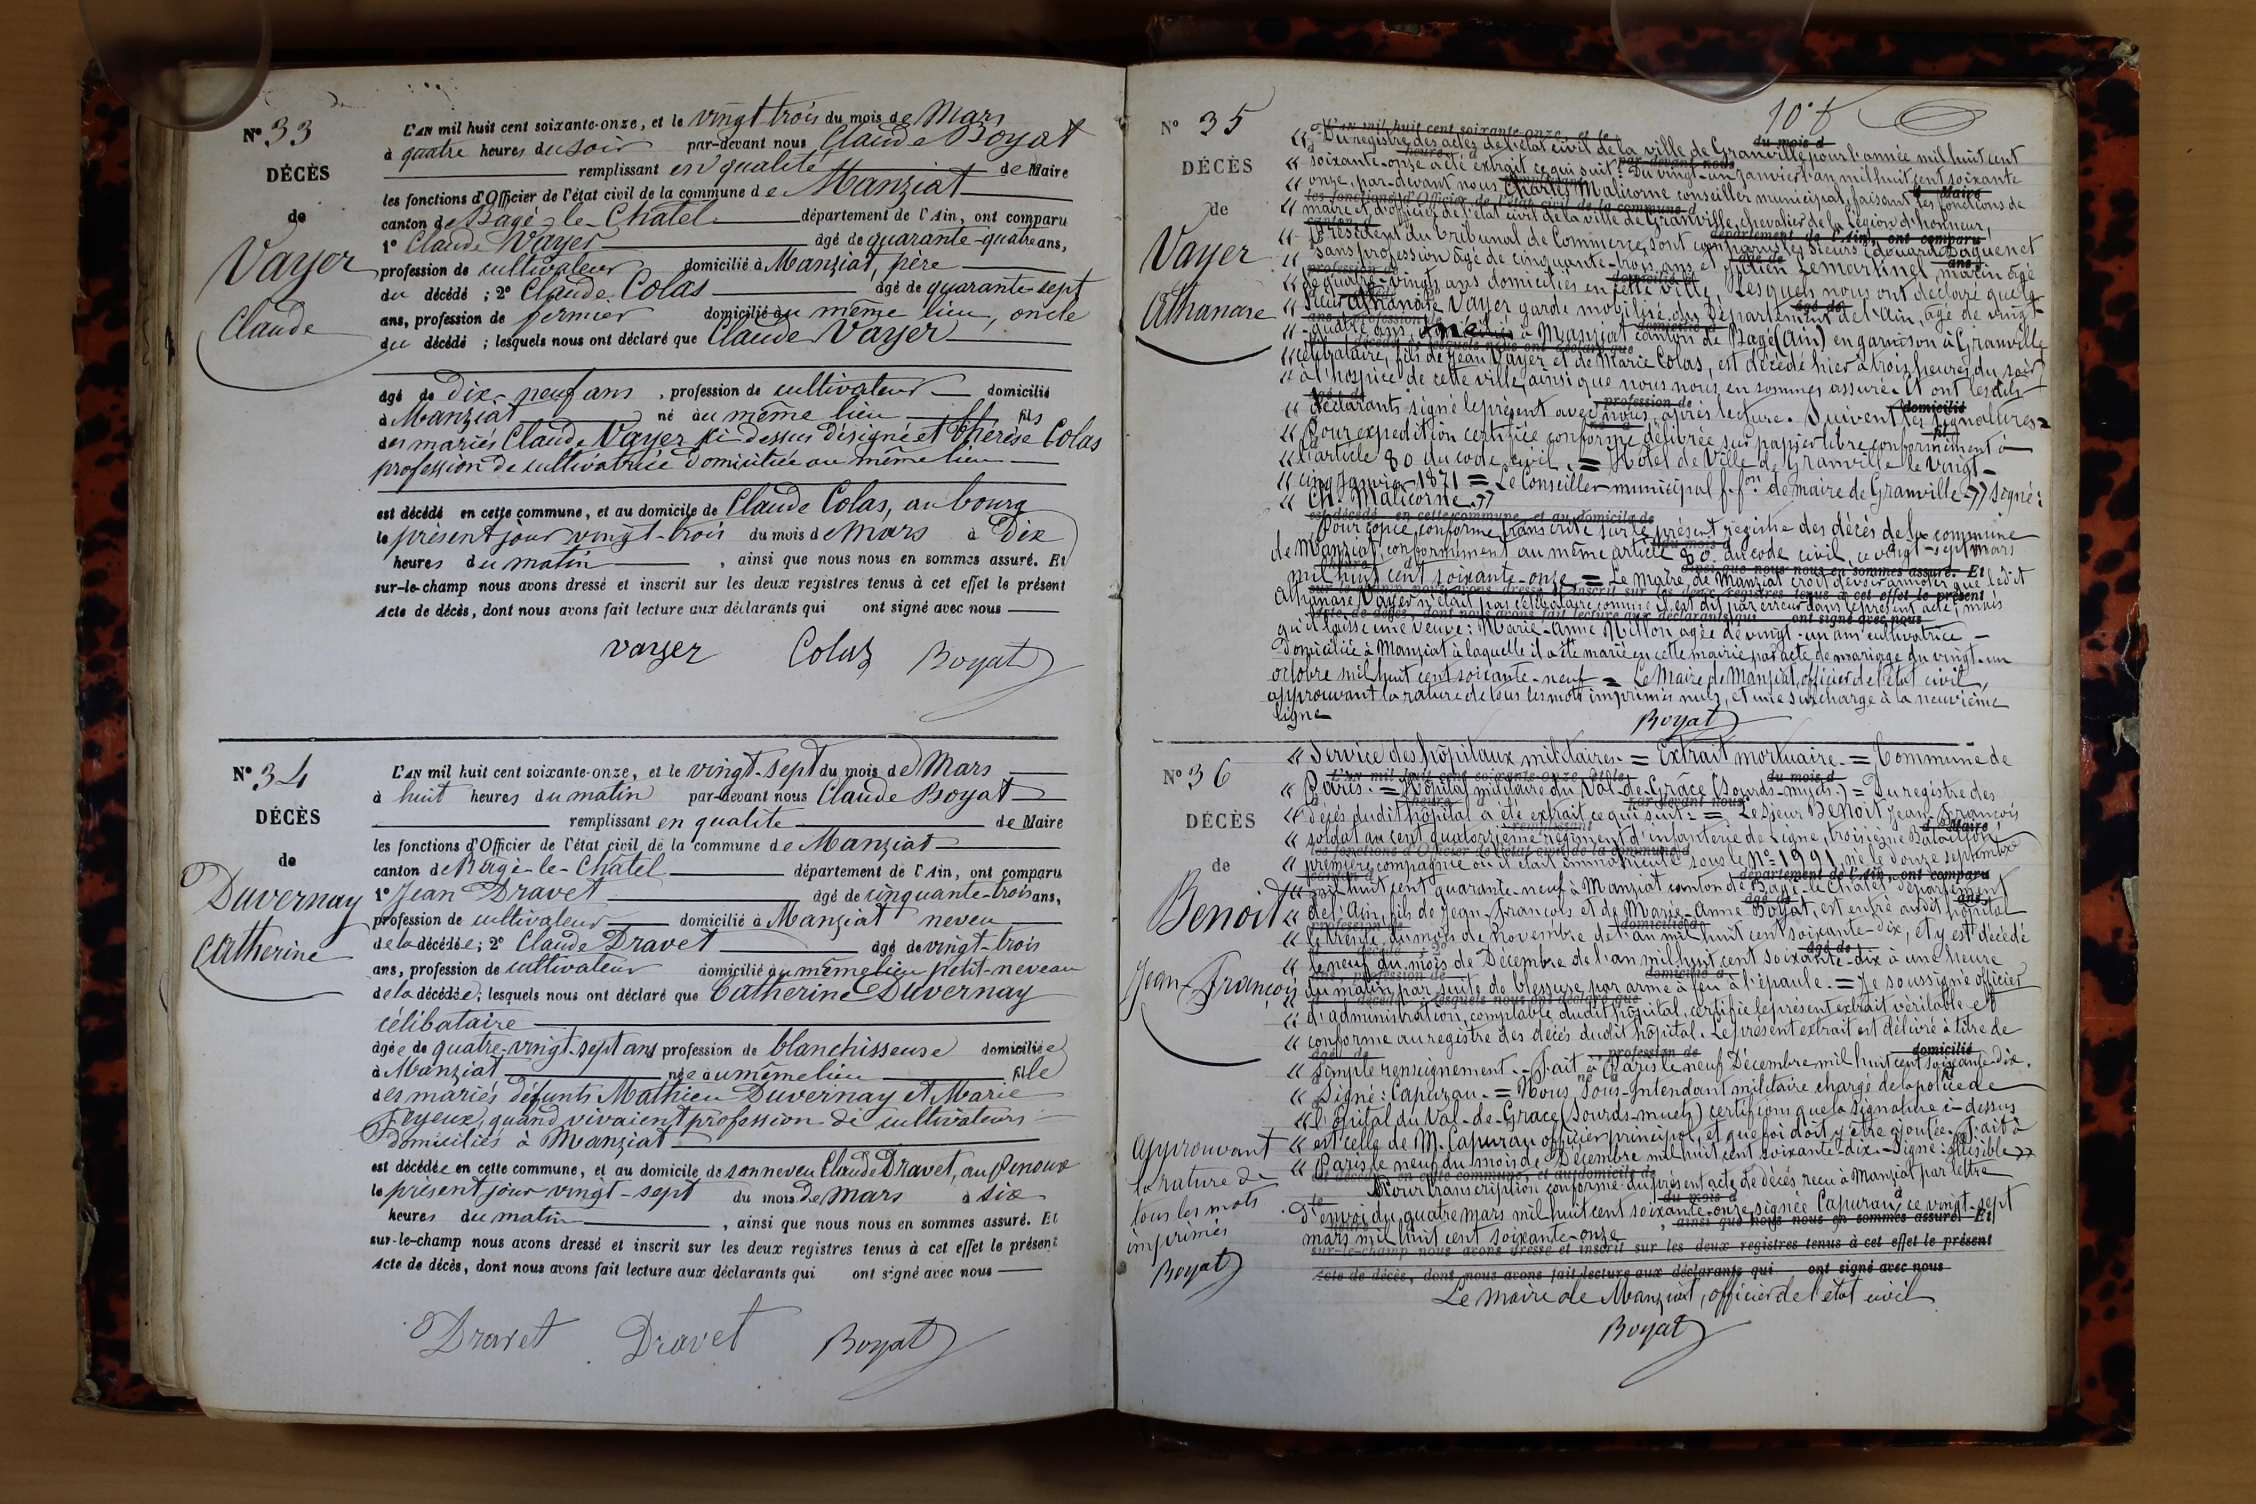 N° 33
DÉCÈS
de
Vayer
Claude
L'AN mil huit cent soixante-onze, et le vingt trois du mois de Mars
à quatre heures du soir par-devant nous Claude Boyat
remplissant en qualité de Maire
les fonctions d'Officier de l'état civil de la commune de Manziat
canton de Bagé-le-Chatel département de l'Ain, ont comparu
1° Claude Vayer âgé de quarante-quatre ans,
profession de cultivateur domicilié à Manziat, père
du décédé ; 2° Claude Colas âgé de quarante-sept
ans, profession de fermier domicilié au même lieu, oncle
du décédé ; lesquels nous ont déclaré que Claude Vayer
âgé de dix-neuf ans, profession de cultivateur domicilié
à Manziat né au même lieu fils
des mariés Claude Vayer ci dessus désigné et Thérèse Colas
profession de cultivatrice domiciliée au même lieu
est décédé en cette commune, et au domicile de Claude Colas, au bourg
le présent jour vingt-trois du mois de Mars à Dix
heures du matin, ainsi que nous nous en sommes assuré. Et
sur-le-champ nous avons dressé et inscrit sur les deux registres tenus à cet effet le présent
Acte de décès, dont nous avons fait lecture aux déclarants qui ont signé avec nous
Vayer Colas Boyat
N° 34
DÉCÈS
de
Duvernay
Catherine
L'AN mil huit cent soixante-onze, et le vingt-sept du mois de Mars
à huit heures du matin par-devant nous Claude Boyat
remplissant en qualité de Maire
les fonctions d'Officier de l'état civil de la commune de Manziat
canton de Bâgé-le-Chatel département de l'Ain, ont comparu
1° Jean Dravet âgé de cinquante-trois ans,
profession de cultivateur domicilié à Manziat neveu
de la décédée; 2° Claude Dravet âgé de vingt-trois
ans, profession de cultivateur domicilié au même lieu petit-neveau
de la décédée; lesquels nous ont déclaré que Catherine Duvernay
célibataire
âgée de quatre-vingt-sept ans profession de blanchisseuse domiciliée
à Manziat née au même lieu fille
des mariés défunts Mathieu Duvernay et Marie
Joyeux, quand vivaient profession de cultivateurs
domiciliés à Manziat
est décédée en cette commune, et au domicile de son neveu Claude Dravet, au Penoux
le présent jour vingt-sept du mois de Mars à six
heures du matin, ainsi que nous nous en sommes assuré. Et
sur-le-champ nous avons dressé et inscrit sur les deux registres tenus à cet effet le présent
Acte de décès, dont nous avons fait lecture aux déclarants qui ont signé avec nous
Dravet Dravet Boyat
N° 35
DÉCÈS
de
Vayer
Athanase
« Du registre des actes de l'état civil de la ville de Granville pour l'année mil huit cent
« soixante-onze a été extrait ce qui suit: Du vingt-un janvier l'an mil huit cent soixante
« onze, par-devant nous Charles Malicorne conseiller municipal, faisant les fonctions de
« maire et d'officier de l'état civil de la ville de Granville, chevalier de la légion d'honneur,
« Président du Tribunal de Commerce, sont comparus les sieurs Edouard Daguenet
« sans profession âgé de cinquante-trois ans et Julien Lemartinel marin âgé
« de quatre-vingts ans domiciliés en cette ville, Lesquels nous ont déclaré que le
« sieur Athanase Vayer garde mobilisé du Département de l'Ain, âgé de vingt-
« quatre ans, né à Manziat canton de Bagé (Ain) en garnison à Granville
« célibataire, fils de Jean Vayer et de Marie Colas, est décédé hier à trois heures du soir
« à l'hospice de cette ville, ainsi que nous nous en sommes assuré. Et ont les dits
« déclarants signé le présent avec nous, après lecture. Suivent les signatures =
« Pour expédition certifiée conforme délivrée sur papier libre conformément à
« l'article 80 du code civil. = Hôtel de Ville de Granville le vingt-
« cinq Janvier 1871 = Le Conseiller municipal f.fon de maire de Granville » Signé:
« Ch. Malicorne. »
Pour copie conforme transcrite sur le présent registre des décès de la commune
de Manziat, conformément au même article 80 du code civil, ce vingt-sept mars
mil huit cent soixante-onze = Le Maire de Manziat croit devoir annoter que ledit
Athanase Vayer n'était pas célibataire comme il est dit par erreur dans le présent acte, mais
qu'il laisse une veuve: Marie-Anne Millon âgée de vingt-un ans cultivatrice
domiciliée à Manziat à laquelle il a été marié en cette mairie par acte de mariage du vingt-un
octobre mil huit cent soixante-neuf = Le Maire de Manziat, officier de l'état civil,
approuvant la rature de tous les mots imprimés nuls, et une surcharge à la neuvième
ligne
Boyat
N° 36
DÉCÈS
de
Benoit
Jean-François
« Service des hôpitaux militaires. = Extrait mortuaire. = Commune de
« Paris. = Hôpital militaire du Val-de-Grâce (Sourds-muets.) = Du registre des
« décès dudit hôpital a été extrait ce qui suit: = Le Sieur Benoit Jean-François
« soldat au cent quatorzième régiment d'infanterie de Ligne, troisième Bataillon,
« première compagnie où il était immatriculé sous le N° = 1991, né le douze septembre
« mil huit cent quarante-neuf à Manziat canton de Bagé-le-Chatel département
« de l'Ain, fils de Jean-François et de Marie-Anne Boyat, est entré audit hôpital
« le trente du mois de Novembre de l'an mil huit cent soixante-dix, et y est décédé
« le neuf du mois de Décembre de l'an mil huit cent soixante-dix à une heure
« du matin par suite de blessure par arme à feu à l'épaule. = Je soussigné officier
« d'administration, comptable dudit hôpital, certifie le présent extrait véritable et
« conforme au registre des décès dudit hôpital. Le présent extrait est délivré à titre de
« simple renseignement. Fait à Paris le neuf Décembre mil huit cent soixante-dix.
« Signé: Capuran. = Nous Sous-Intendant militaire chargé de la police de
« l'hôpital du Val-de-Grâce (Sourds-muets) certifions que la signature ci-dessus
« est celle de M. Capuran officier principal, et que foi doit y être ajoutée. Fait à
« Paris le neuf du mois de Décembre mil huit cent soixante-dix. Signé: illisible »
Pour transcription conforme du présent acte de décès reçu à Manziat par lettre
d'envoi du quatre mars mil huit cent soixante-onze, signée Capuran, ce vingt-sept
mars mil huit cent soixante-onze
Le Maire de Manziat, officier de l'état civil
Boyat
Approuvant
la rature de
tous les mots
imprimés
Boyat